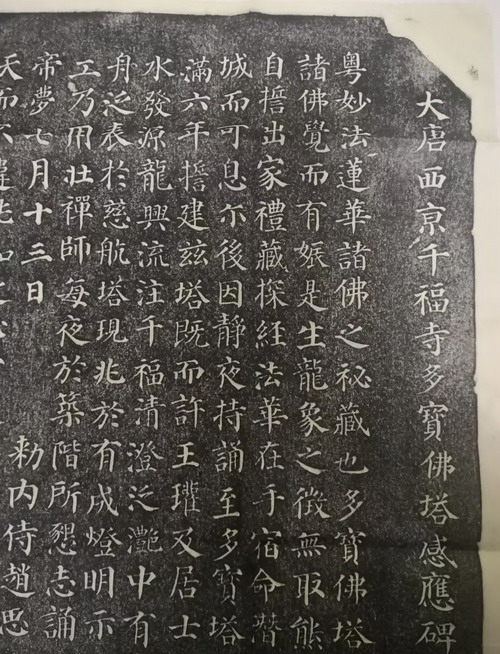 大唐西亰千福寺多寶佛塔感應碑
粵妙法蓮華諸佛之祕藏也多寶佛塔
諸佛覺而有娠是生龍象之徵無取熊
自誓出家禮藏探經法華在手宿命潛
城而可息尒後因靜夜持誦至多寶塔
滿六年誓建兹塔既而許王瓘及居士
水發源龍興流注千福清澄泛灧中有
舟泛表於慈航塔現兆於有成燈明示
工乃用壯禪師每夜於築階所懇志誦
帝夢七月十三日 勑內侍趙思
天而不